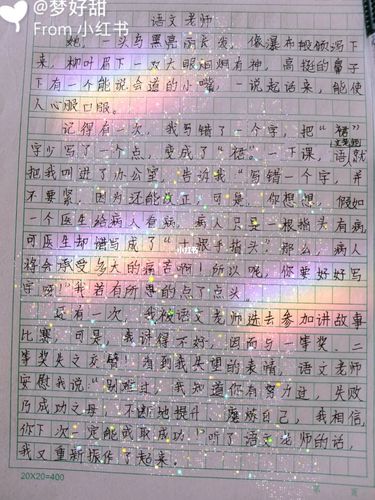 @梦好甜
From 小红书
语文老师
她，一头乌黑亮丽长发，像瀑布般倾泻下
来，柳叶眉下一双大眼炯炯有神，高挺的鼻子
下有一个能说会道的小嘴，一说起话来，能使
人心服口服。
记得有一次，我写错了一个字，把“裙”
字少写了一个点，变成了“裙”。一下课，语
文老师
就
把我叫进了办公室，告诉我：“写错一个字，并
不要紧，因为还能改正，可是，你想想，假如
一个医生给病人看病，病人只是一根指头有病，
可医生却错写成了“十根手指头”那么，病人
将会承受多大的痛苦啊！所以呢，你要好好写
字呀！”我若有所思的点了点头。
还有一次，我被语文老师选去参加讲故事
比赛，可是，我讲得不好，因而与一等奖、二
等奖失之交臂！看到我失望的表情，语文老师
安慰我说：“别难过，我知道你有努力过，失败
乃成功之母，不断地提升、磨炼自己，我相信，
你下次一定能或取成功！”听了语文老师的话，
我又重新振作了起来。
小红书
20X20=400